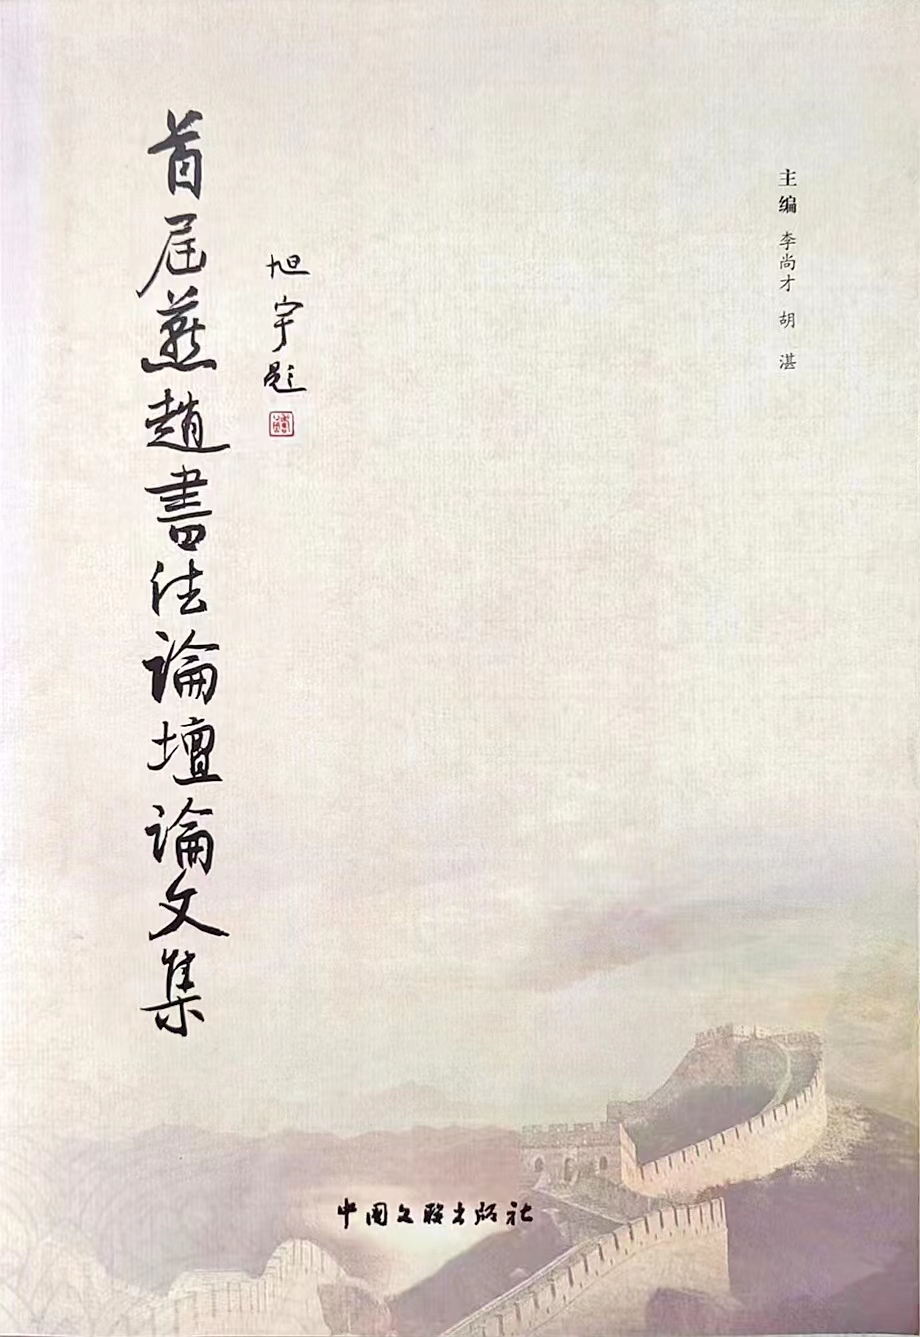 首届燕趙書法論壇論文集
旭宇题
主编 李尚才 胡 湛
中国文联出版社